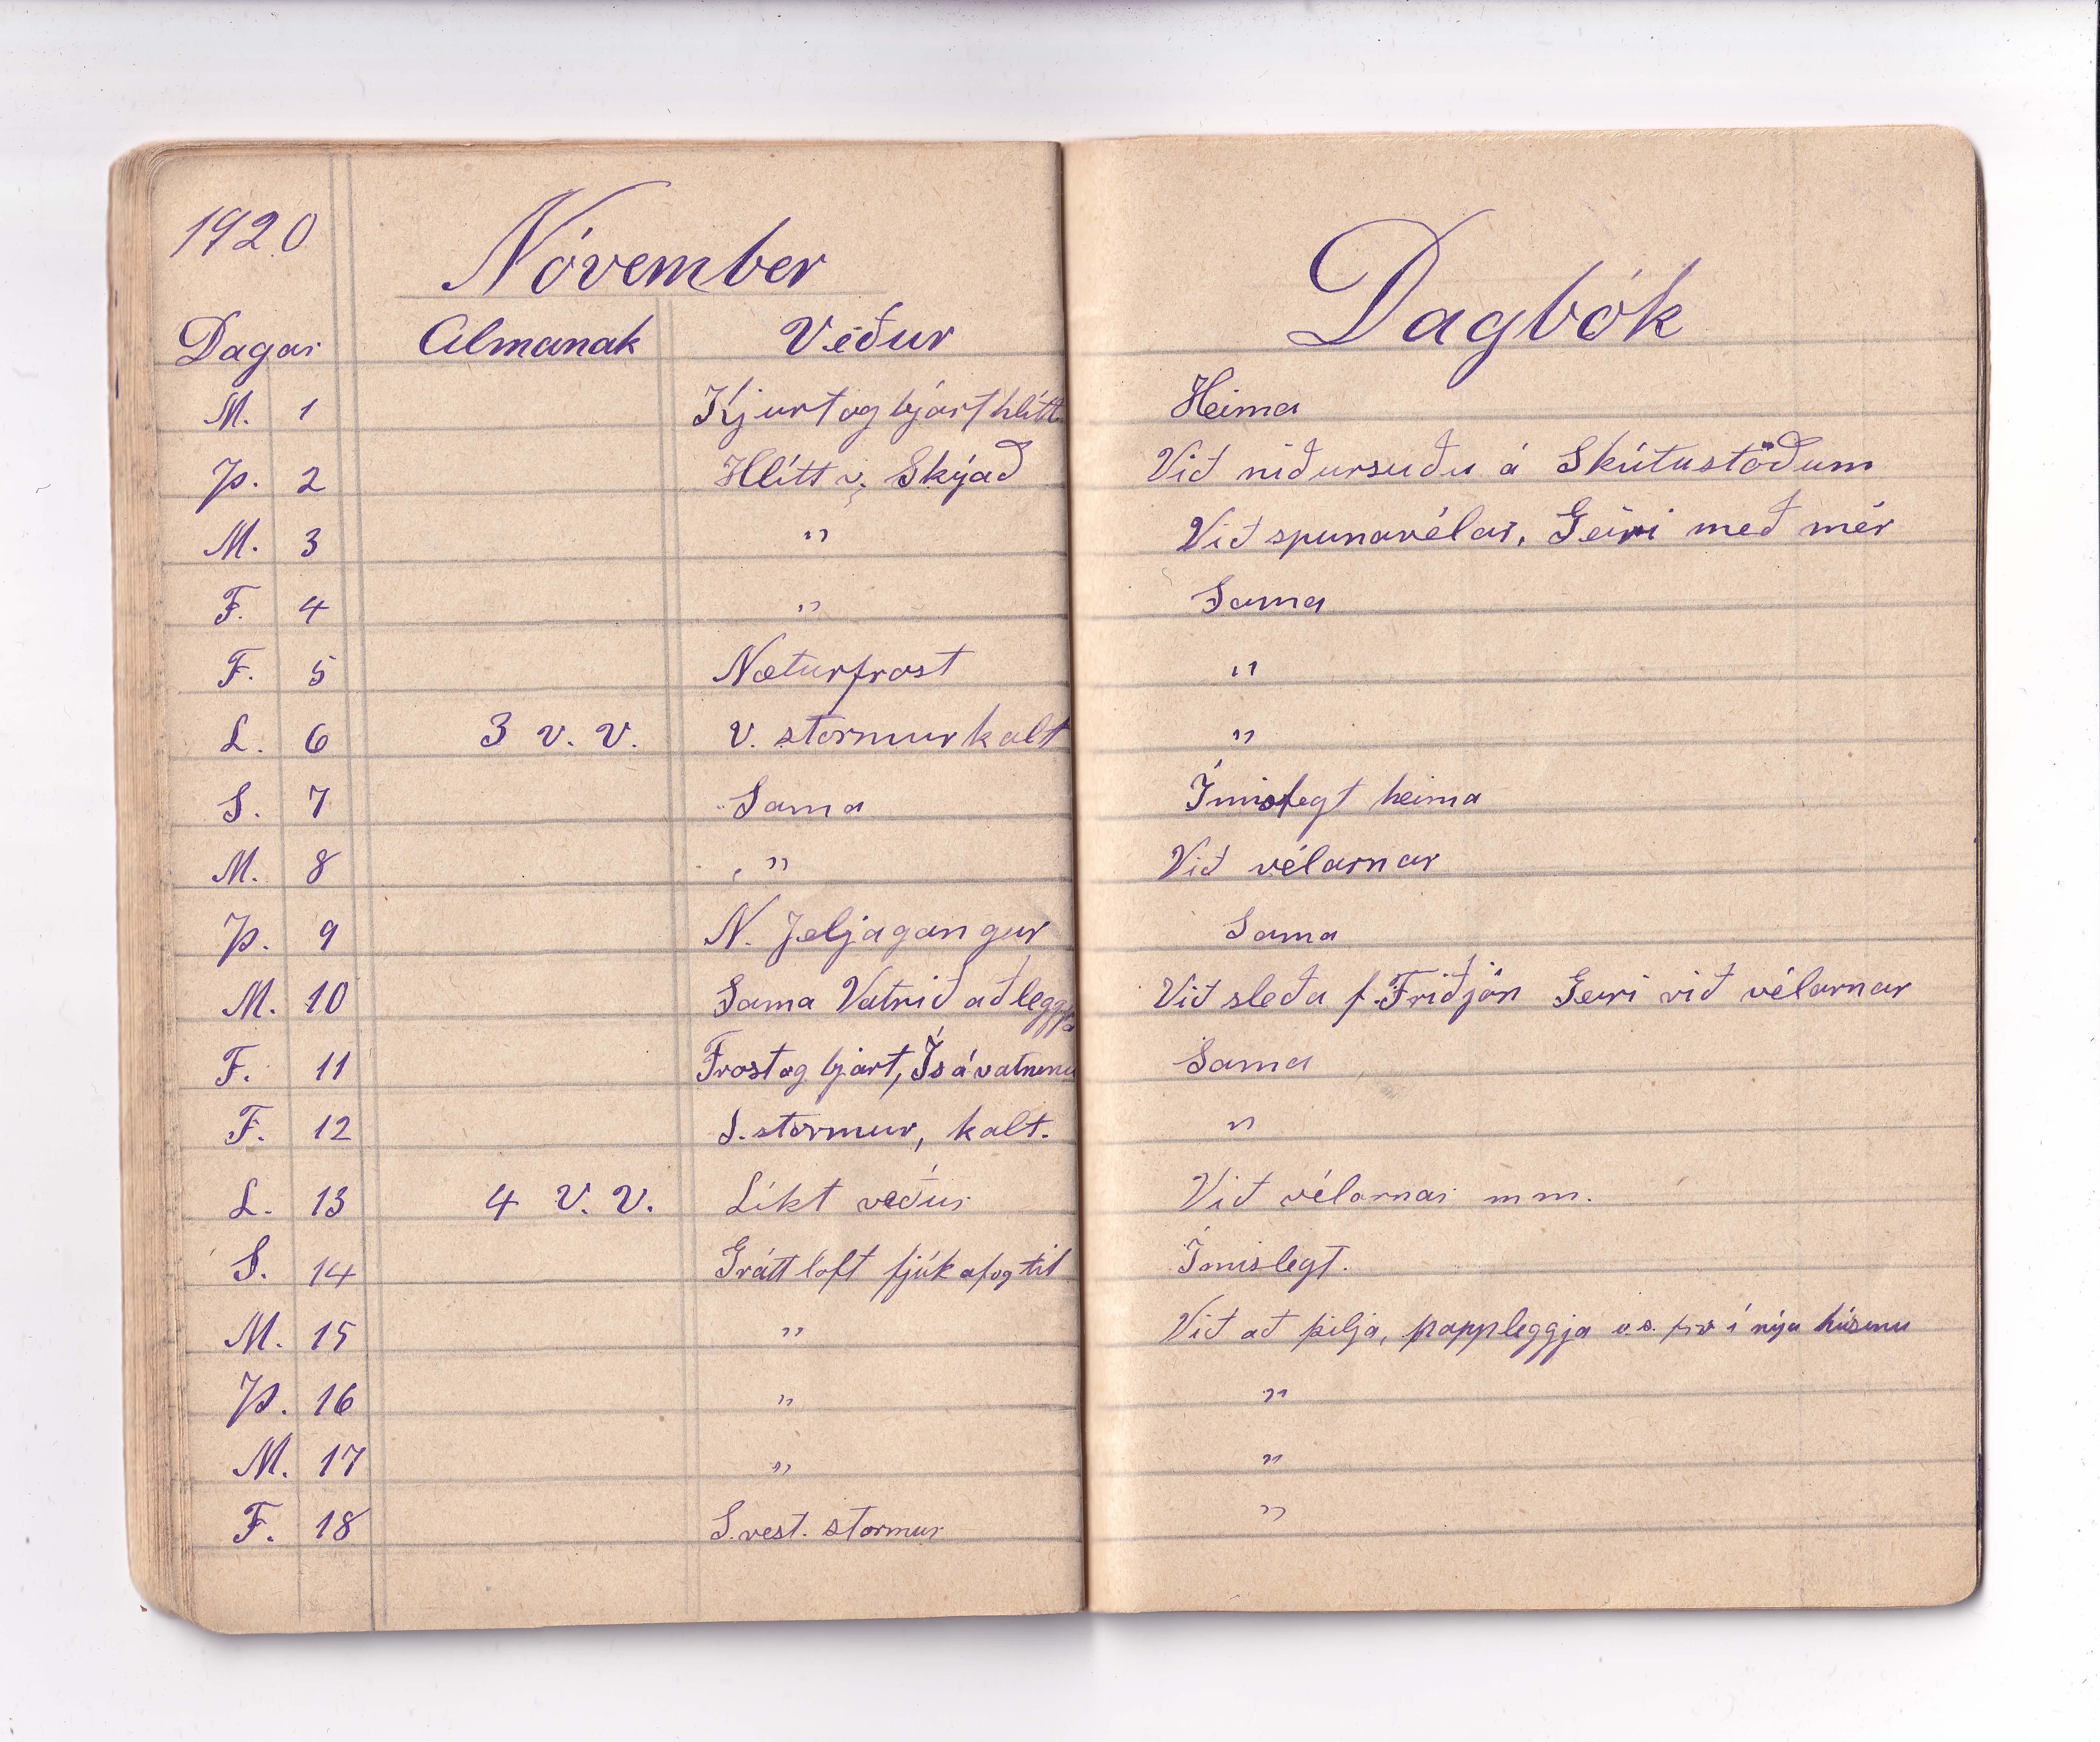 1920
Nóvember
Dagar Almanak Veður
M. 1 Kjurt og bjart hlítt
Þ. 2 Hlítt v. Skýað
M. 3 "
F. 4 "
F. 5 Næturfrost
L. 6 3 v. v. V. stormur kalt
S. 7 Sama
M. 8 "
Þ. 9 N. Jeljagangur
M. 10 Sama Vatnið að leggja
F. 11 Frost og bjart, Ís á vatnenu
F. 12 S. stormur, kalt.
L. 13 4 v. v. Líkt veður
S. 14 Grátt loft fjúk af og til
M. 15 "
Þ. 16 "
M. 17 "
F. 18 S. vest. stormur
Dagbók
Heima
Við niðursuðu á Skútustöðum
Við spunavélar, Geiri með mér
Sama
"
"
Ímislegt heima
Við vélarnar
Sama
Við sleða f. Friðjón Geiri við vélarnar
Sama
"
Við vélarnar m m.
Ímislegt.
Við að þilja, pappleggja o. s. frv í nýa húsenu
"
"
"